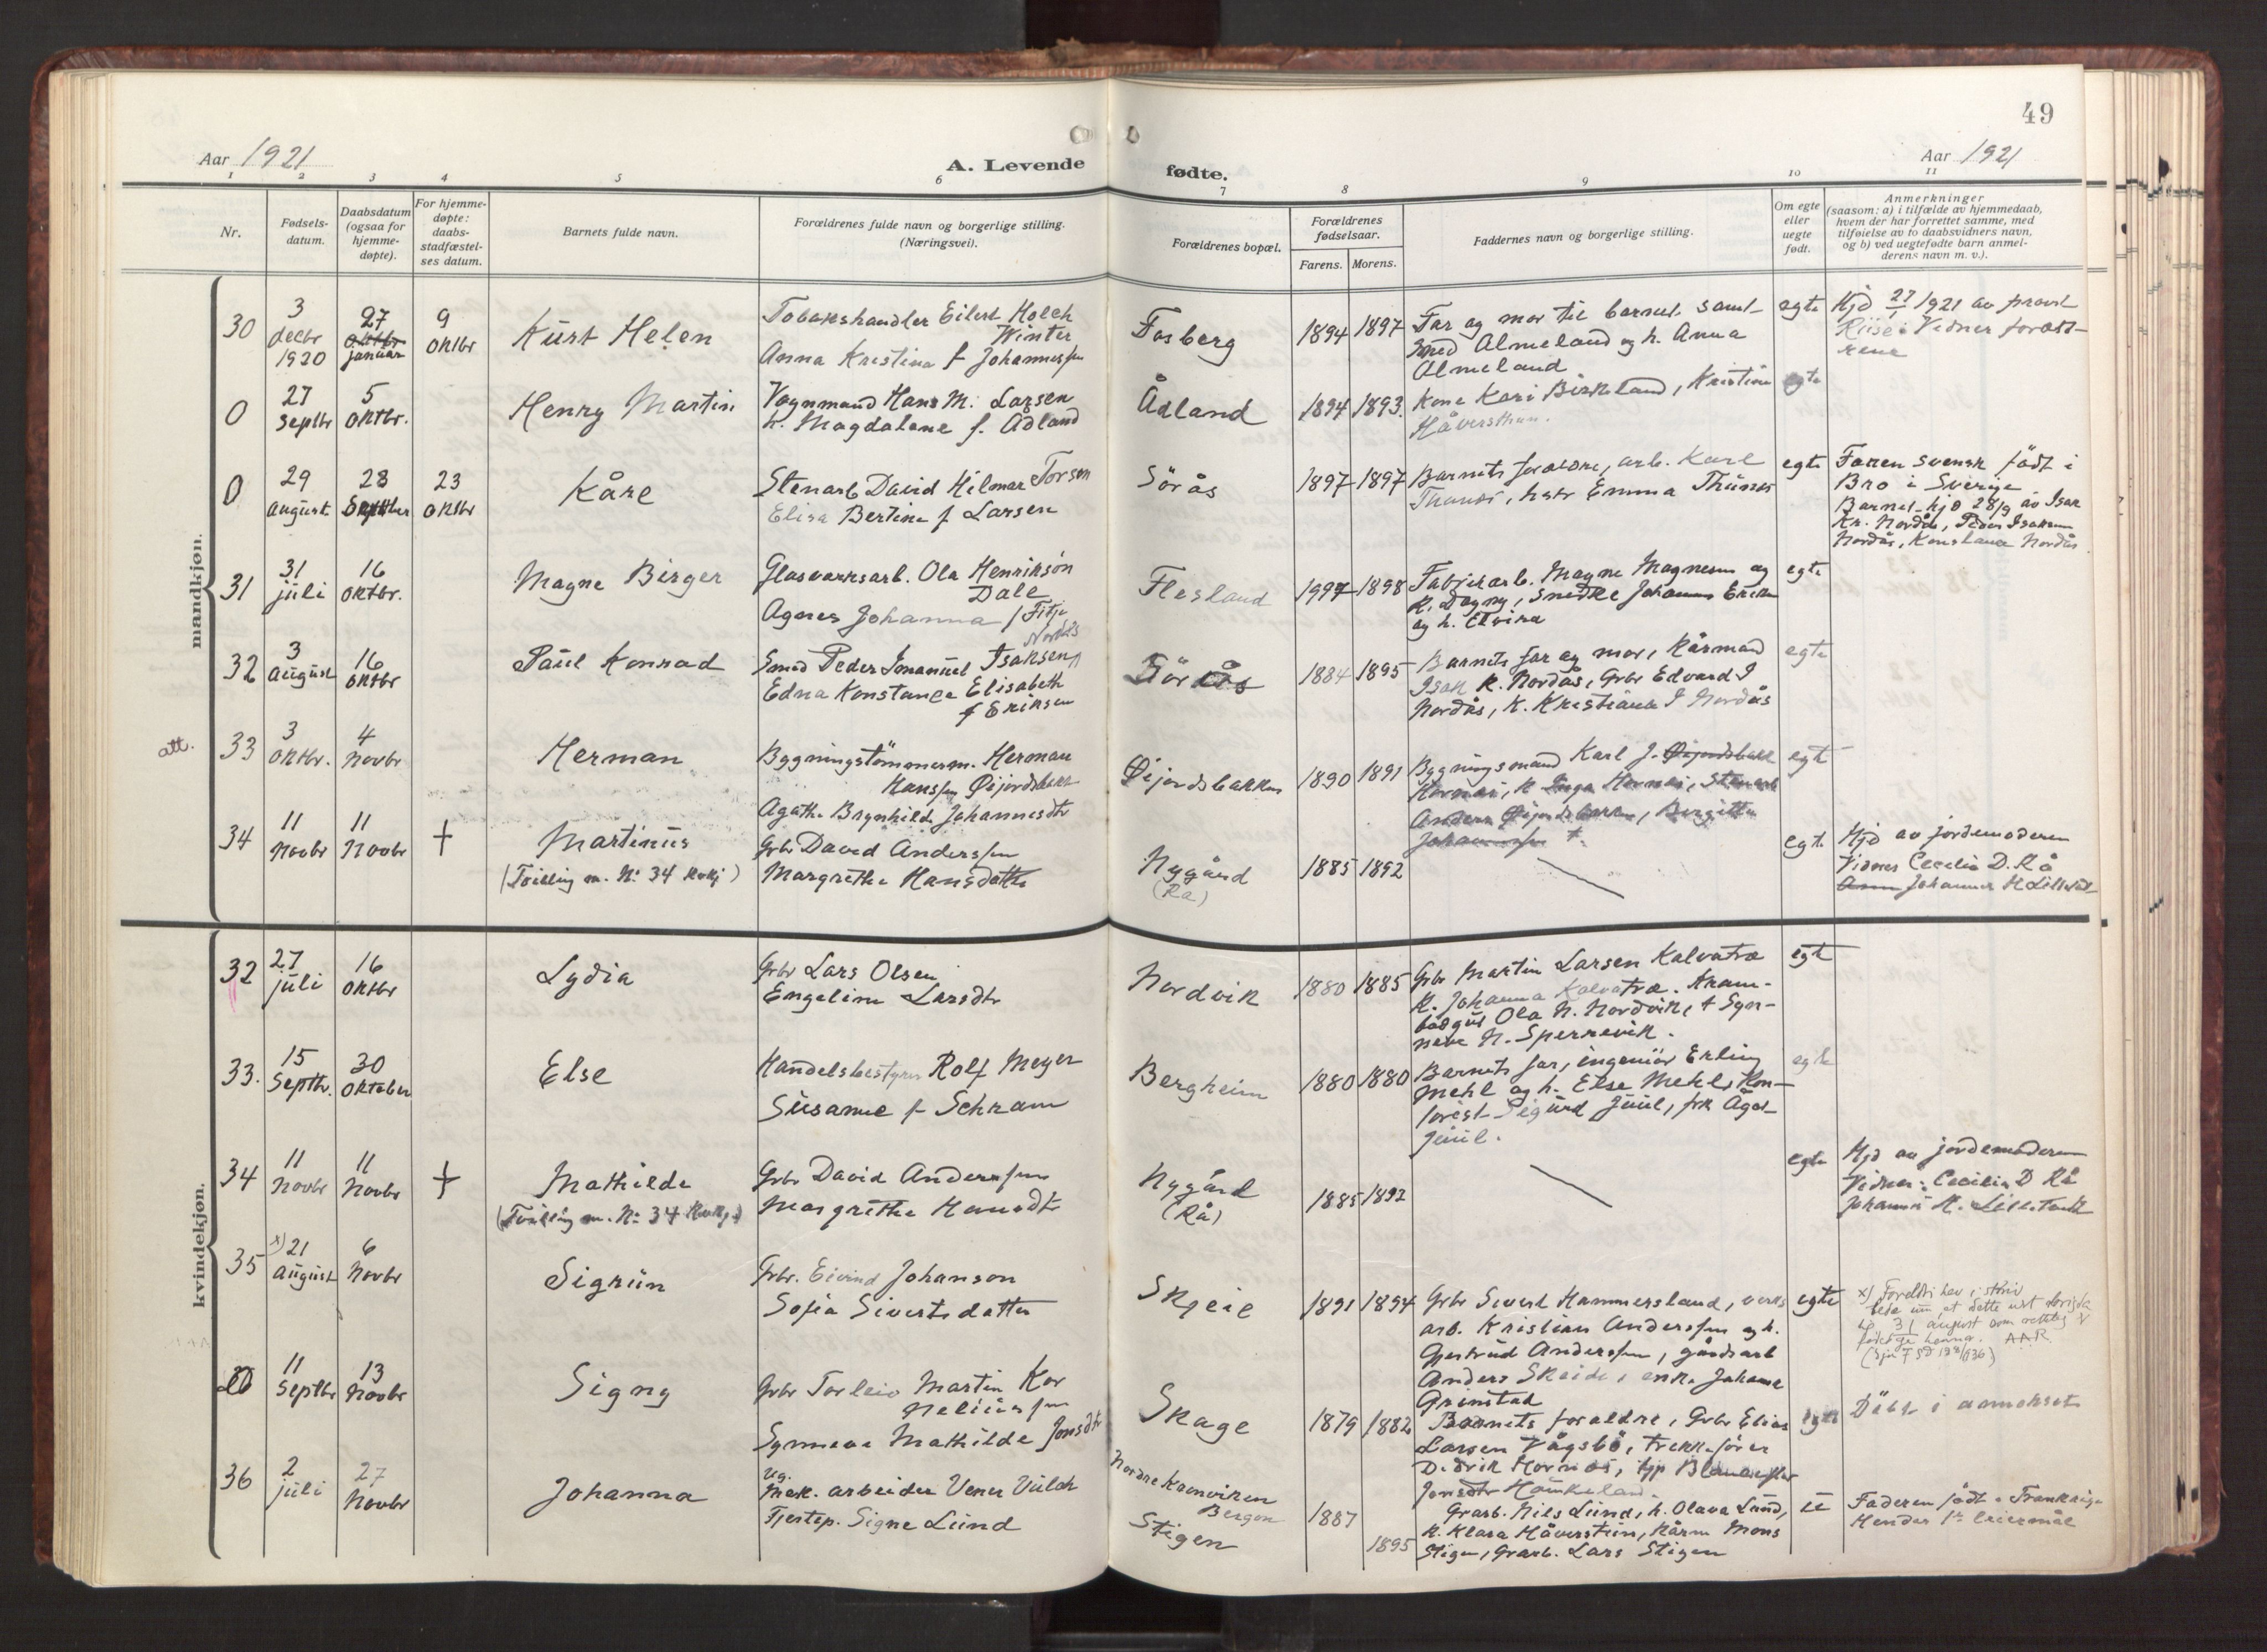 49
Aar 1921
A. Levende
fødte.
Aar 1921
1 2 3 4 5 6 7 8 9 10 11
Nr.
Fødsels-
datum.
Daabsdatum
(ogsaa for
hjemme-
døpte).
For hjemme-
døpte:
daabs-
stadfæstel-
ses datum.
Barnets fulde navn.
Forældrenes fulde navn og borgerlige stilling.
(Næringsvei).
Forældrenes bopæl.
Forældrenes
fødselsaar.
Farens. Morens.
Faddernes navn og borgerlige stilling.
Om egte
eller
uegte
født.
Anmerkninger
(saasom: a) i tilfælde av hjemmedaab,
hvem der har forrettet samme, med
tilføielse av to daabsvidners navn,
og b) ved uegtefødte barn anmel-
derens navn m. v.).
mandkjøn.
30
3
decbr
1920
27
oktbr
januar
9
oktbr
Kurt Helen
Tobakshandler Eilert Holck
Winter
Anna Kristina f Johannessen
Fosberg
1894 1897
Far og mor til barnet samt
Smed Almeland og h. Anna
Almeland
egte
Hjd 27/1 1921 av provst
Riise. Vidner foræld-
rene
0
27
septbr
5
oktbr.
Henry Martin
Vognmand Hans M. Larsen
h. Magdalene f. Ådland
Ådland
1894 1893.
Kone Kari Birkeland, Kristine
Håversthun.
egte
0
29
august
28
septbr
23
oktbr
Kåre
Stenarb David Hilmar Torsen
Elisa Bertine f Larsen
Sörås
1897 1897
Barnets forældre, arb. Karl
Thunes, hstr Emma Thunes
egte
Faren svensk född i
Bro i Sverige
Barnet hjd 28/9 av Isak
Kr. Nordås, Peder Isaksen
Nordås, Konstance Nordås
31
31
juli
16
oktbr.
Magne Birger
Glasverksarb. Ola Henrikson
Dale
Agnes Johanna f Fitje
Flesland
1897 1898
Fabrikarb. Magne Magnesen og
k. Dagny, Snedker Johannes Eriksen
og h. Elvira
egte
32
3
august
16
oktbr
Paul Konrad
Nordås
Smed Peder Imanuel Isaksen
Edna Konstance Elisabeth
f Eriksen
Sörås
1884 1895
Barnets far og mor, Kårmand
Isak K. Nordås, Grbr Edvard I
Nordås, K. Kristiana I Nordås
egte
att.
33
3
oktbr.
4
novbr
Herman
Bygningstömmerm. Herman
Hanssen Øijordsbakk
Agathe Brynhild Johannesdtr
Øijordsbakken
1890 1891
Bygningsmand Karl J. Øijordsbakk
Hornæs, K Inga Hornæs, Stenarb
Anders Øijordsbakken, Birgitte
Johannessen
egte
34
11
novbr
11
novbr
+
Martinus
(Tvilling m. No 34 kvkj)
Grbr David Anderssen
Margrethe Hansdatter
Nygård
(Rå)
1885 1892
egt.
Hjd av jordemoderen
Vidner Cecelia D. Rå
Johannes H Lilletvedt
kvindekjøn.
32
27
juli
16
oktbr
Lydia
Grbr Lars Olsen
Engeline Larsdtr
Nordvik
1880 1885
Grbr Martin Larsen Kalvatræ
K. Johanna Kalvatræ. Kram-
bodgut Ola N. Nordvik, + Syn-
neve N. Sperrevik.
egte
33.
15
septbr.
30
oktober
Else
Handelsbestyrer Rolf Meyer
Susanne f Schram
Bergheim
1880 1880
Barnets far, ingeniör Erling
Mehl og h. Else Mehl, Kon-
torist Sigurd Juul, frk Agot
Juul.
egte
34
11
novbr
11
novbr
+
Mathilde
(Tvilling m. No 34 )
Grbr David Anderssen
Margrethe Hansdtr
Nygård
(Rå)
1885 1892
egte
Hjd av jordemoderen
Vidner: Cecilia D Rå
Johannes H. Lilletvedt
35
x) 21
august
6
novbr
Sigrun
Grbr. Eivind Johanson
Sofia Sivertsdatter
Skjeie
1891 1894
Grbr Sivert Hammersland, verks
arb. Kristian Anderssen og h.
Gjertrud Anderssen, gårdsarb
Anders Skeide, enke Johanna
Grimstad
egte
x) Foreldri hev i skriv
31 august som rettleg
henna. AAR
20
11
septbr
13
novbr
Signy
Grbr Torleiv Martin Kor
neliussen
Synneva Mathilde Jonsdtr
Skage
1879 1882
Barnets forældre, Grbr Elias
Larsen Vågsbö, trekkfører
Didrik Hornæs,
Jonsdtr Haukeland.
egte
Döbt i annekset
36
2
juli
27
novbr
Johanna
Ug.
Mek. arbeider Verner Vulch
Tjestep. Signe Lund
Nordre Kronviken
Bergen
Stigen
1887
1895
Grarb. Nils Lund, h. Olava Lund,
K. Klara Håverstein, Kårm Mons
Stigen, Grarb. Lars Stigen
u
Faderen födt i Frankrige
Hendes 1ste leiermål